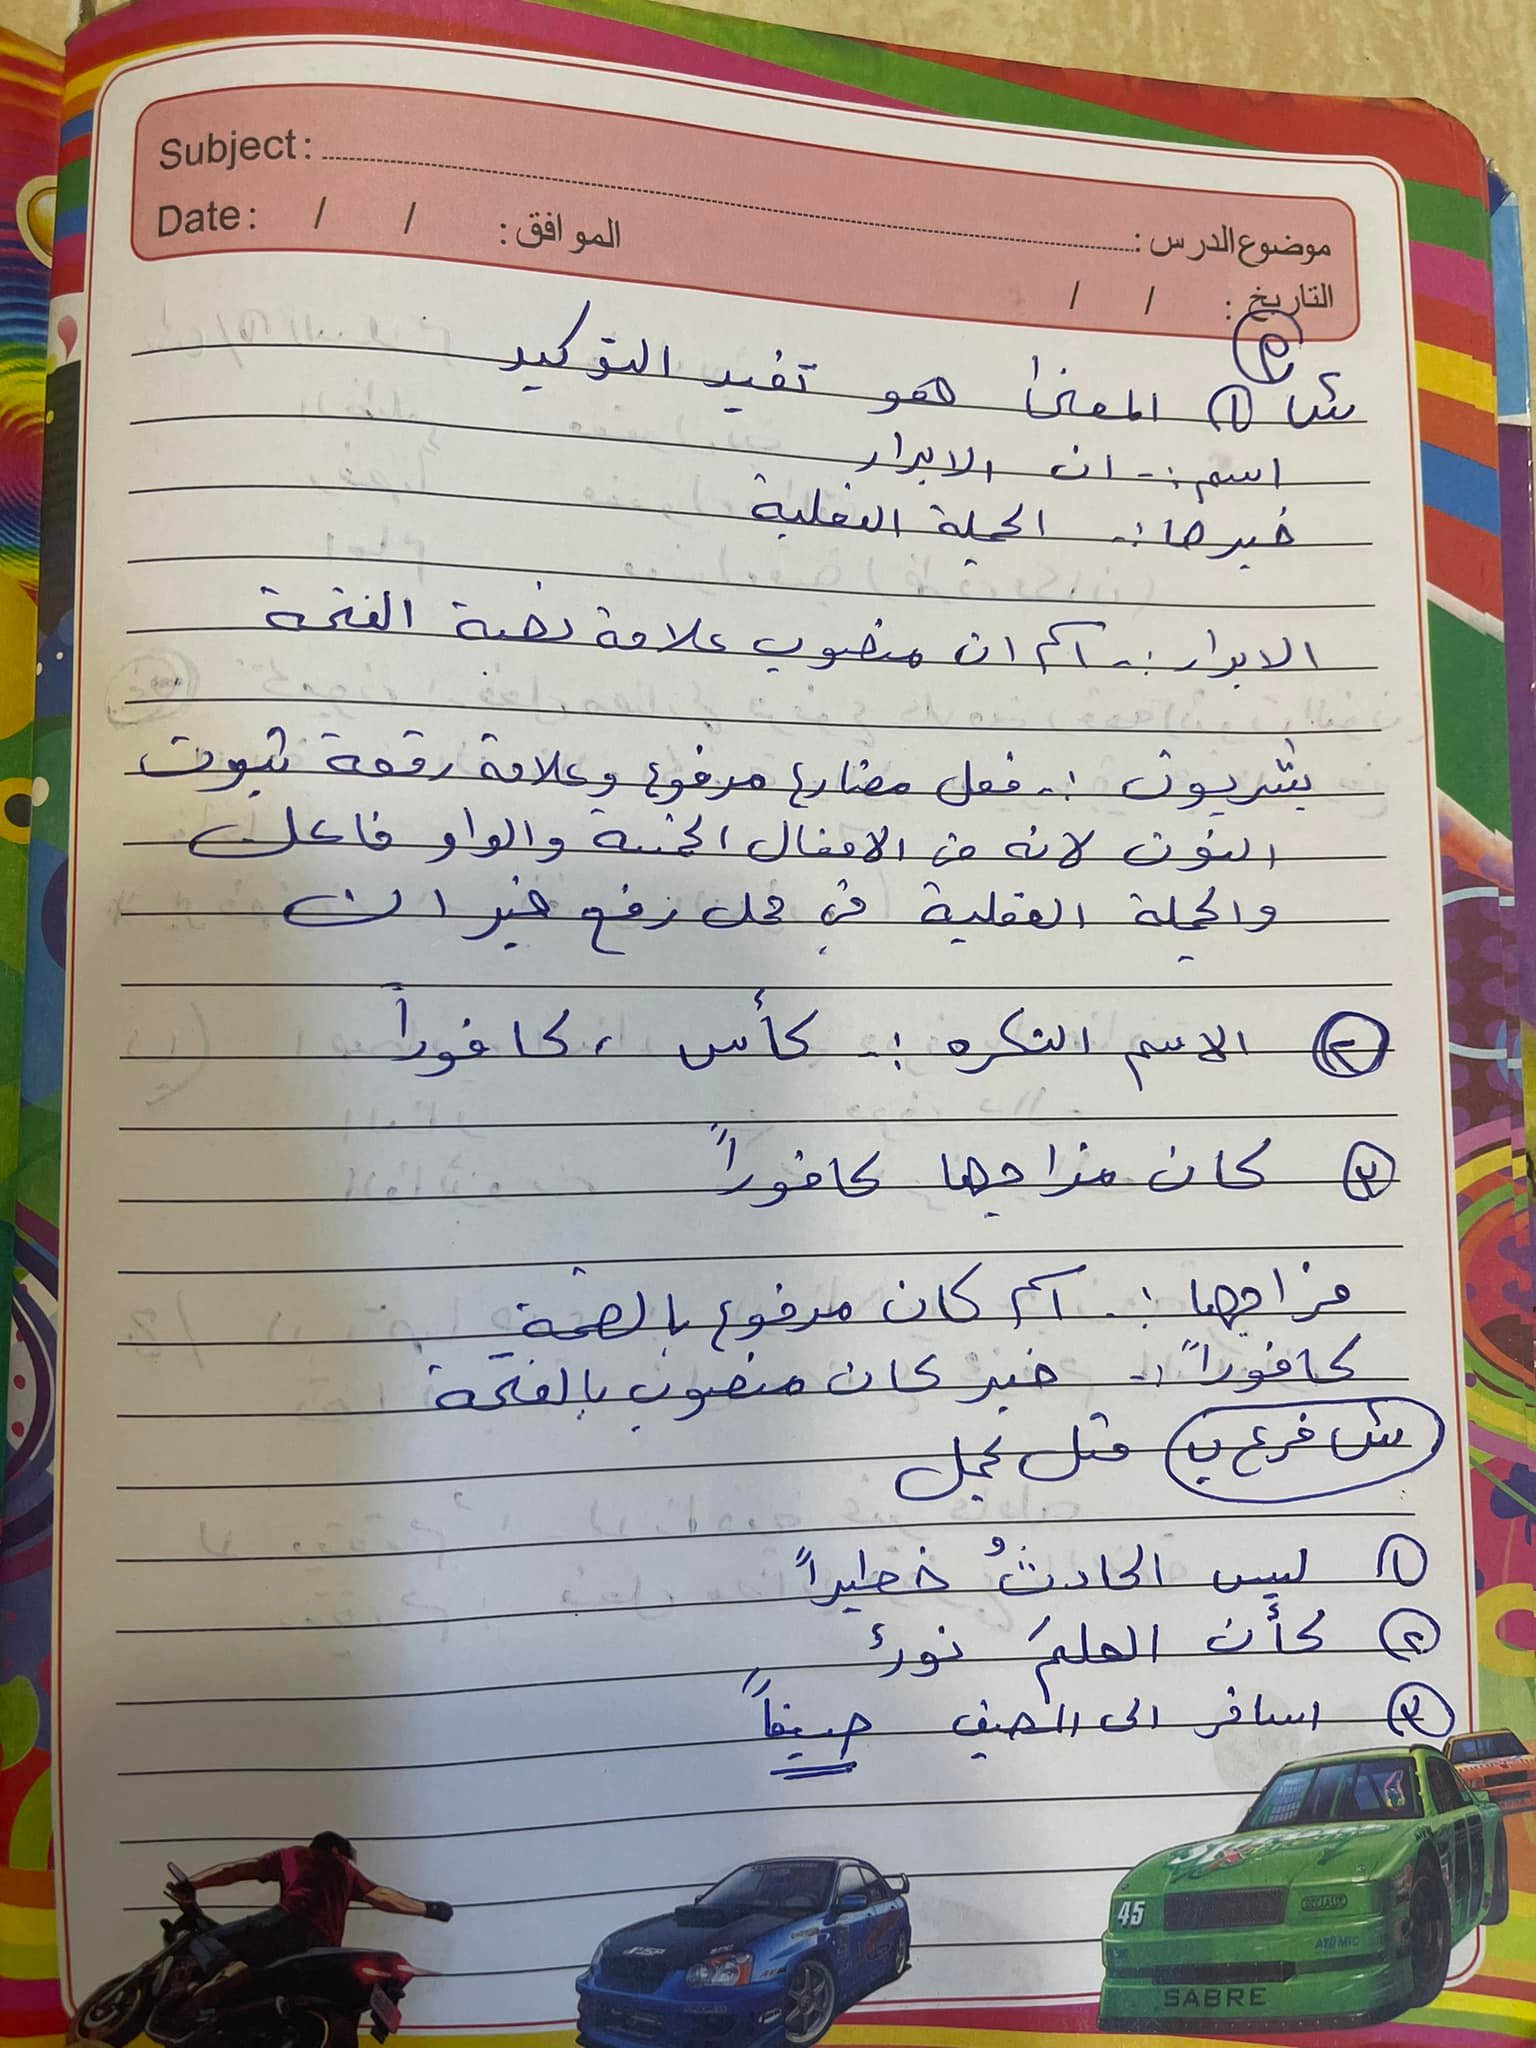 Subject:
موضوع الدرس :
Date: / / الموافق:
التاريخ : / /
م
س ① المعنى هو تفيد التوكيد
اسم :- ان الابرار
خبرها :- الجملة الفعلية
الابرار :- اسم ان منصوب علامة نصبة الفتحة
يشربون :- فعل مضارع مرفوع وعلامة رفعة ثبوت
النون لانه من الافعال الخمسة والواو فاعل
والجملة الفعلية في محل رفع خبر ان
② الاسم النكره :- كأس ، كافوراً
③ كان مزاجها كافوراً
مزاجها :- اسم كان مرفوع بالضمة
كافوراً :- خبر كان منصوب بالفتحة
س فرع ب مثل بجمل
① ليس الحادثُ خطيراً
② كأن العلمَ نورٌ
③ اسافر الى المصيف صيفاً
45
SABRE